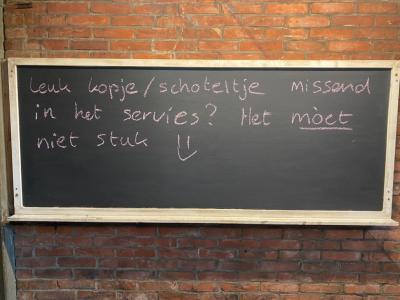 Leuk kopje/schoteltje missend
in het servies? Het mòet
niet stuk